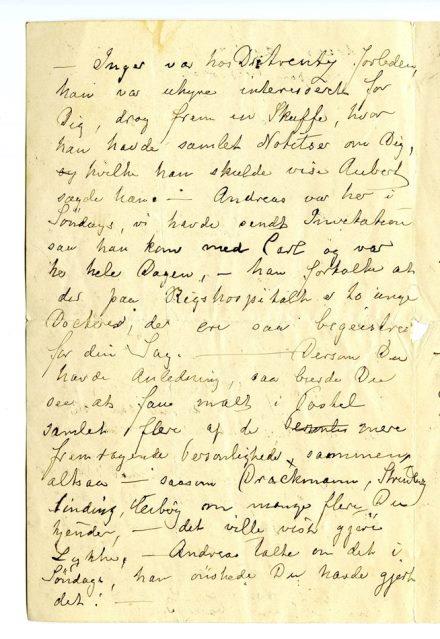 — Inger var hos Dr forleden,
han var uhyre interesseret for
Dig, drog frem en Skuffe, hvor
han havde samlet Notitser om Dig,
og hvilke han skulde vise Aubert
sagde han. — Andreas var her i
Söndags, vi havde sendt Invetation
saa han kom med Carl og var
her hele Dagen, — han fortalte at
der paa Rigshospitalet er to unge
Doctored, der ere saa begeistret
for din Sag. — Dersom Du
havde Anledning, saa burde Du
see at faae malt i Pastel
samlet flere af de mere
fremragende Personligheder sammen
altsaa — saasom Drackmann, Strindberg
om mange flere Du
kjender, — det ville vist gjöre
Lykke, — Andreas talte om det i
Söndags, han önskede Du havde gjort
det! —